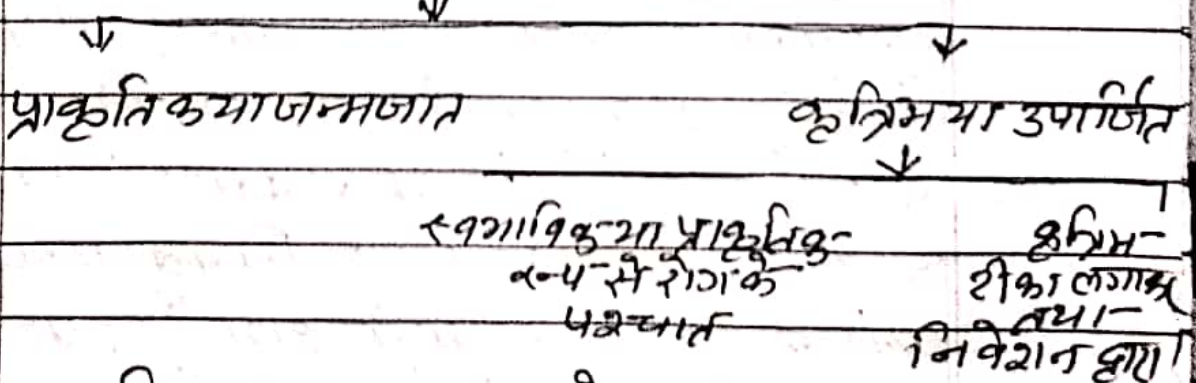 प्राकृतिक या जन्मजात
कृत्रिम या उपार्जित
स्वभाविक या प्राकृतिक-
रूप से रोग के
पश्चात
कृत्रिम-
टीका लगाकर
तथा-
निवेशन द्वारा